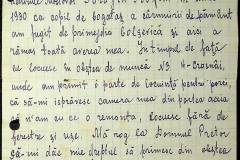 1930 ca cobil de bogataș a cârmuirii de pământ
am fugit de primejdia bolșevică și aici a
rămas toată averea mea. În timpul de față
eu locuesc în obștea de muncă № 4 - Crasnâi,
unde am primit o parte de locuință pentru porci,
că să-mi isprăvesc camera mea din partea aceia
că n'am cu ce o remonta, locuesc fără de
ferestre și uși. Mă rog la Domnul Pretor
să-mi dăe mie dreptul să primesc din obștea